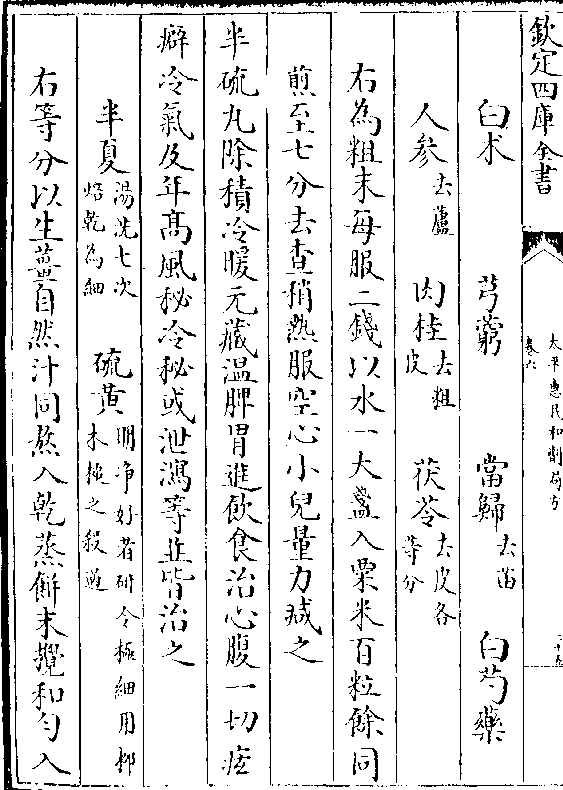 欽定四庫全書
太平惠民和劑局方
卷六
白朮 芎藭 當歸去苗 白芍藥
人參去蘆 肉桂去粗皮 茯苓去皮各等分
右為粗末每服二錢以水一大盞入粟米百粒餘同
煎至七分去查稍熱服空心小兒量力減之
半硫丸除積冷暖元藏温脾胃進飲食治心腹一切痃
癖冷氣及年高風秘冷秘或泄瀉等並皆治之
半夏湯洗七次焙乾為細 硫黄明净好者研令極細用栁木槌之殺過
右等分以生薑自然汁同熬入乾蒸餅末攪和勻入